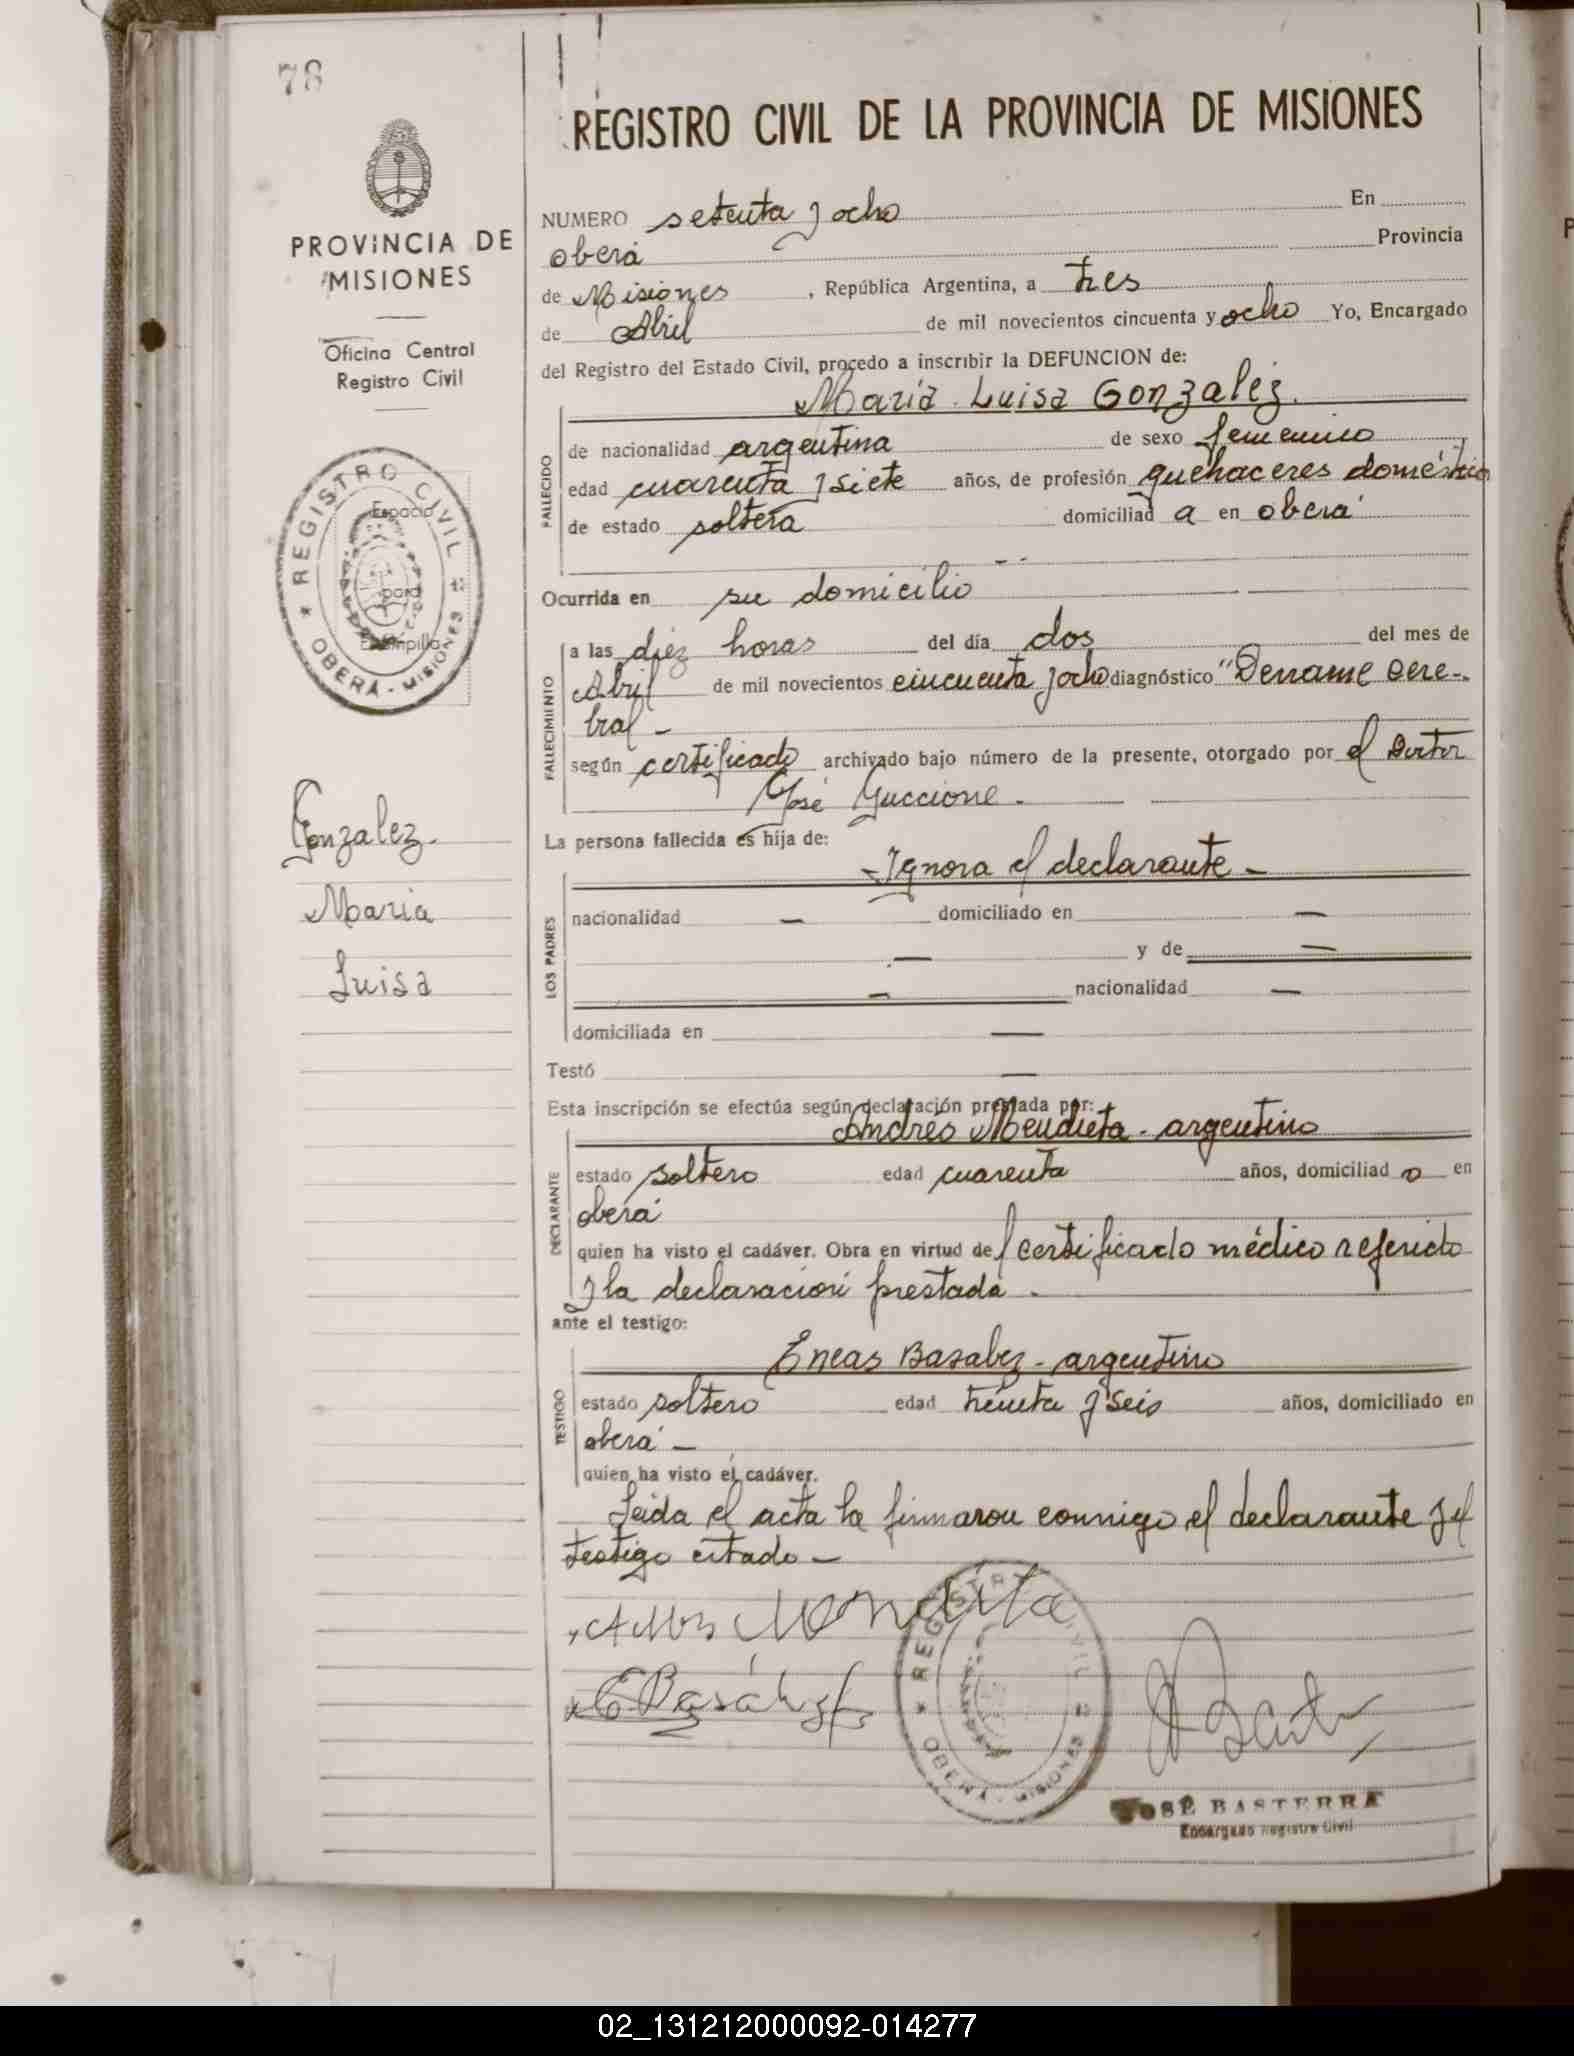 78
PROVINCIA DE
MISIONES
Oficina Central
Registro Civil
REGISTRO CIVIL
Espacio
para
Estampilla
OBERÁ - MISIONES
Gonzalez
Maria
Luisa
REGISTRO CIVIL DE LA PROVINCIA DE MISIONES
NUMERO setenta y ocho En
oberá Provincia
de Misiones , República Argentina, a tres
de Abril de mil novecientos cincuenta y ocho Yo, Encargado
del Registro del Estado Civil, procedo a inscribir la DEFUNCION de:
María Luisa Gonzalez.
FALLECIDO
de nacionalidad argentina de sexo femenino
edad cuarenta y siete años, de profesión quehaceres domésticos
de estado soltera domiciliad a en oberá
Ocurrida en su domicilio
FALLECIMIENTO
a las diez horas del día dos del mes de
Abril de mil novecientos cincuenta y ocho diagnóstico "Derrame cere-
bral -
según certificado archivado bajo número de la presente, otorgado por el Doctor
José Guccione -
La persona fallecida es hija de:
- Ignora el declarante -
LOS PADRES
nacionalidad — domiciliado en —
— y de —
— nacionalidad —
domiciliada en —
Testó —
Esta inscripción se efectúa según declaración prestada por:
Andrés Mendieta - argentino
DECLARANTE
estado soltero edad cuarenta años, domiciliad o en
oberá
quien ha visto el cadáver. Obra en virtud del certificado médico referido
y la declaración prestada -
ante el testigo:
Eneas Basabez - argentino
TESTIGO
estado soltero edad treinta y seis años, domiciliado en
oberá -
quien ha visto el cadáver.
Leida el acta la firmaron conmigo el declarante y el
testigo citado -
Mendita
E Basábez
REGISTRO CIVIL
OBERÁ - MISIONES
JOSÉ BASTERRA
Encargado Registro Civil
02_131212000092-014277